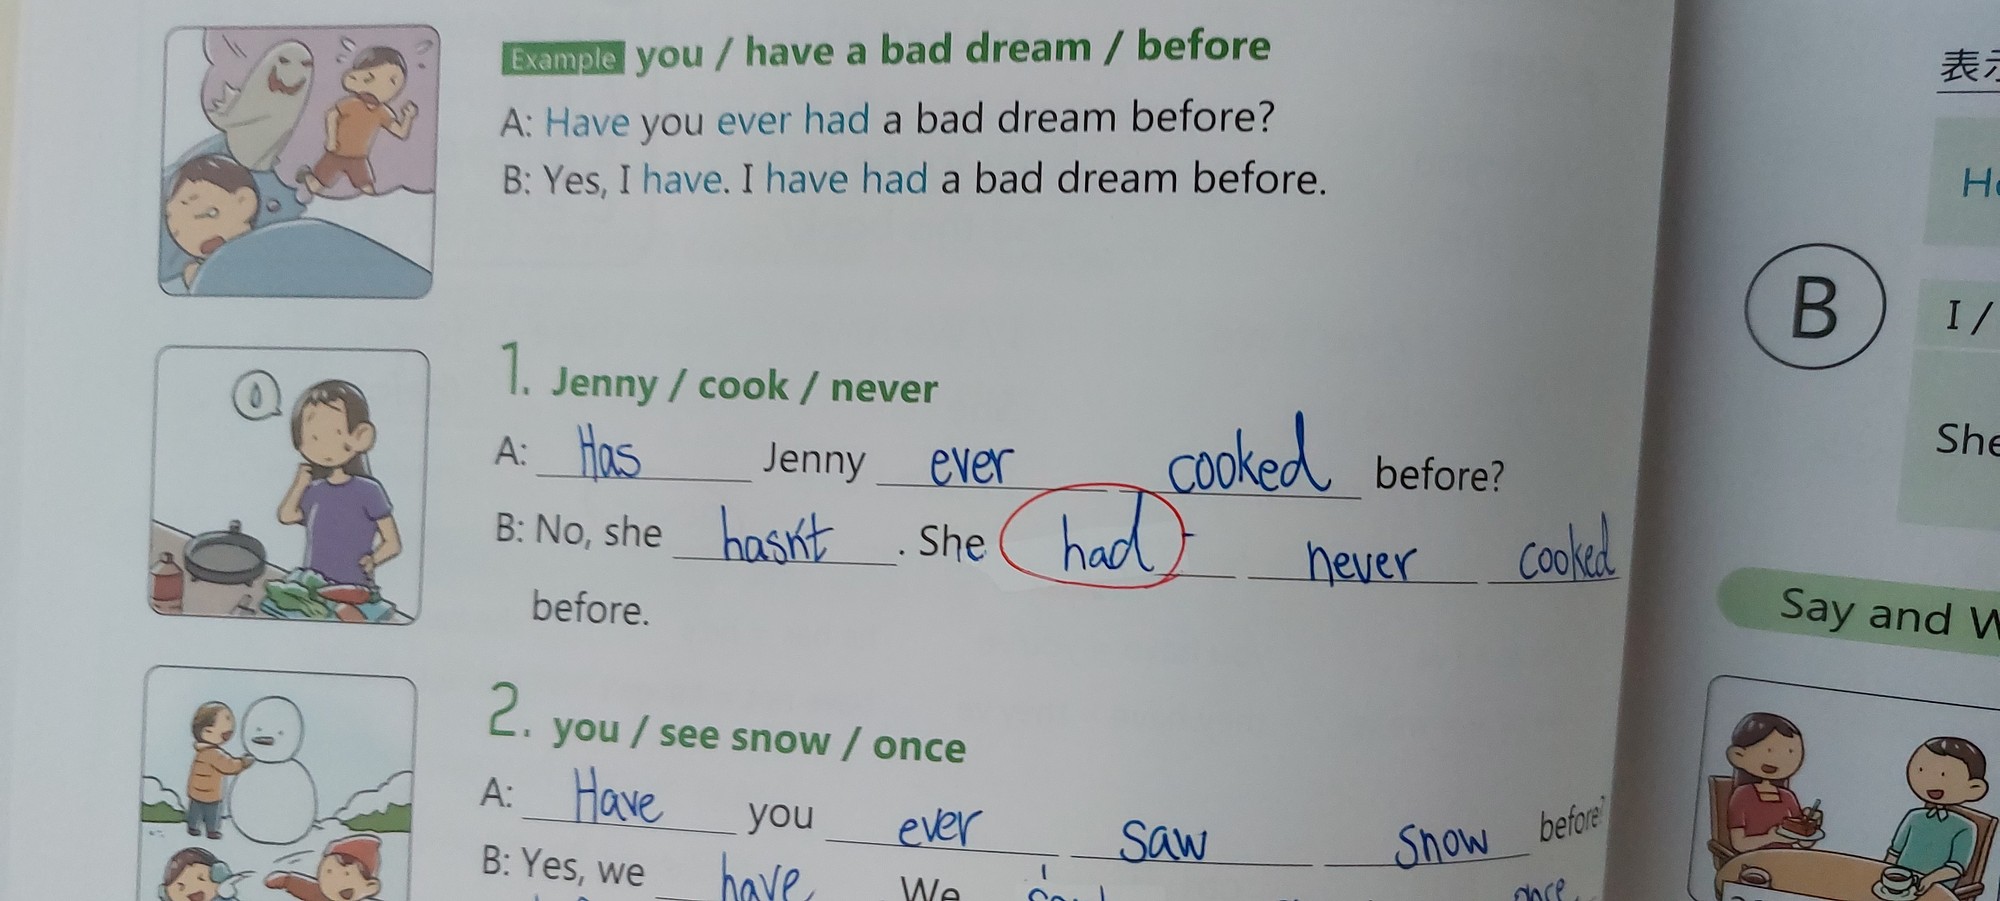 Example you / have a bad dream / before
A: Have you ever had a bad dream before?
B: Yes, I have. I have had a bad dream before.
1. Jenny / cook / never
A: Has Jenny ever cooked before?
B: No, she hasn't. She had never cooked
before.
2. you / see snow / once
A: Have you ever saw snow before?
B: Yes, we have We once
表示
B
I /
She
Say and W